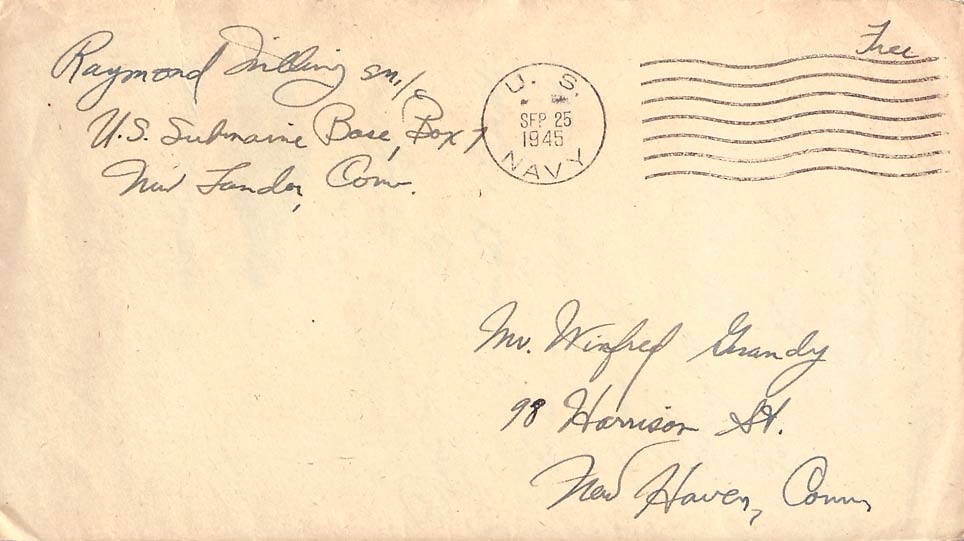 Free
Raymond Milling sm1/c
U.S. Submaine Base, Box 7
New London, Conn.
U. S.
SEP 25
1945
NAVY
Mr. Winfred Grandy
98 Harrison St.
New Haven, Conn,